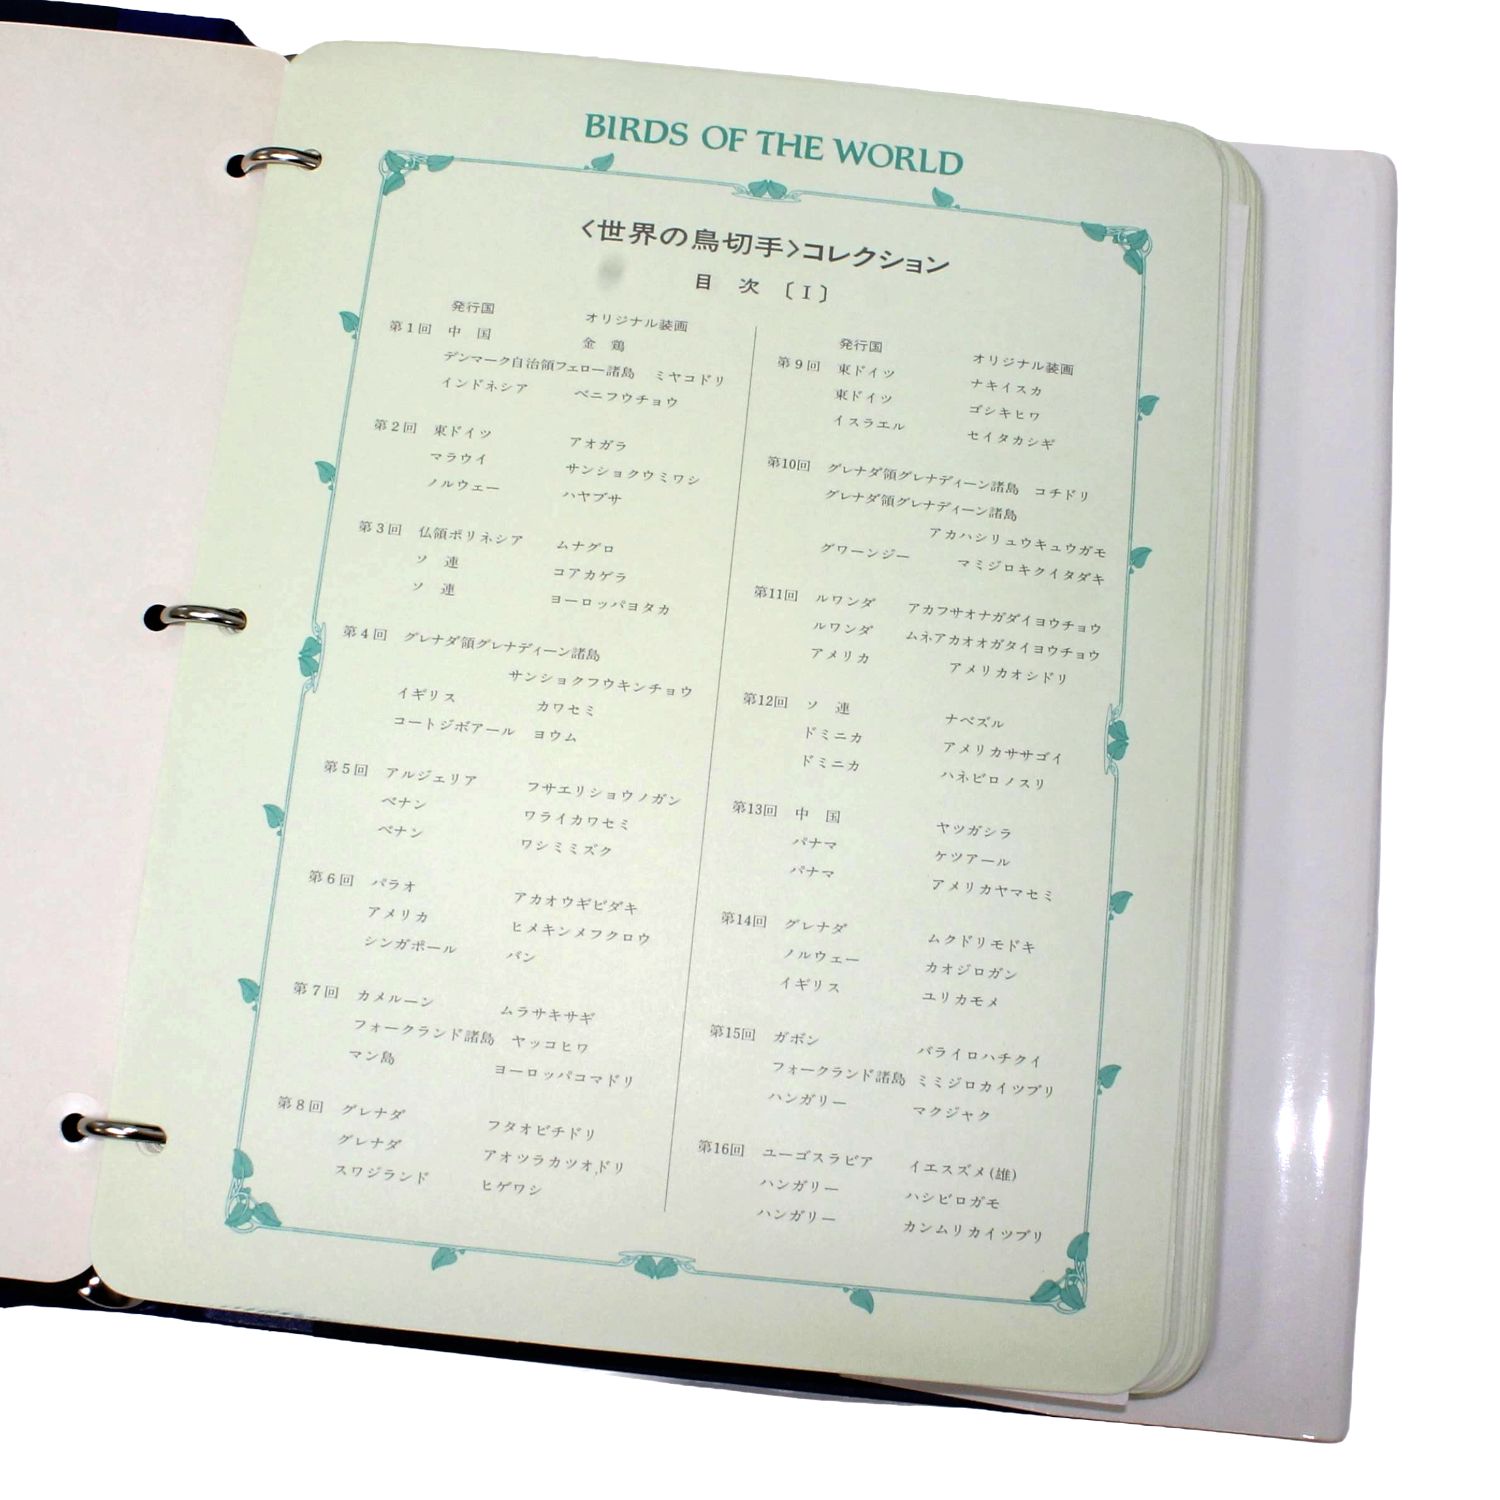 BIRDS OF THE WORLD
〈世界の鳥切手〉コレクション
目 次 〔I〕
発行国 オリジナル装画
第1回 中 国 金 鶏
デンマーク自治領フェロー諸島 ミヤコドリ
インドネシア ベニフウチョウ
第2回 東ドイツ アオガラ
マラウイ サンショクウミワシ
ノルウェー ハヤブサ
第3回 仏領ポリネシア ムナグロ
ソ 連 コアカゲラ
ソ 連 ヨーロッパヨタカ
第4回 グレナダ領グレナディーン諸島
サンショクフウキンチョウ
イギリス カワセミ
コートジボアール ヨウム
第5回 アルジェリア フサエリショウノガン
ベナン ワライカワセミ
ベナン ワシミミズク
第6回 パラオ アカオウギビダキ
アメリカ ヒメキンメフクロウ
シンガポール バン
第7回 カメルーン ムラサキサギ
フォークランド諸島 ヤッコヒワ
マン島 ヨーロッパコマドリ
第8回 グレナダ フタオビチドリ
グレナダ アオツラカツオドリ
スワジランド ヒゲワシ
発行国 オリジナル装画
第9回 東ドイツ ナキイスカ
東ドイツ ゴシキヒワ
イスラエル セイタカシギ
第10回 グレナダ領グレナディーン諸島 コチドリ
グレナダ領グレナディーン諸島
アカハシリュウキュウガモ
グワーンジー マミジロキクイタダキ
第11回 ルワンダ アカフサオナガダイヨウチョウ
ルワンダ ムネアカオオガタイヨウチョウ
アメリカ アメリカオシドリ
第12回 ソ 連 ナベズル
ドミニカ アメリカササゴイ
ドミニカ ハネビロノスリ
第13回 中 国 ヤツガシラ
パナマ ケツアール
パナマ アメリカヤマセミ
第14回 グレナダ ムクドリモドキ
ノルウェー カオジロガン
イギリス ユリカモメ
第15回 ガボン バライロハチクイ
フォークランド諸島 ミミジロカイツブリ
ハンガリー マクジャク
第16回 ユーゴスラビア イエスズメ(雄)
ハンガリー ハシビロガモ
ハンガリー カンムリカイツブリ